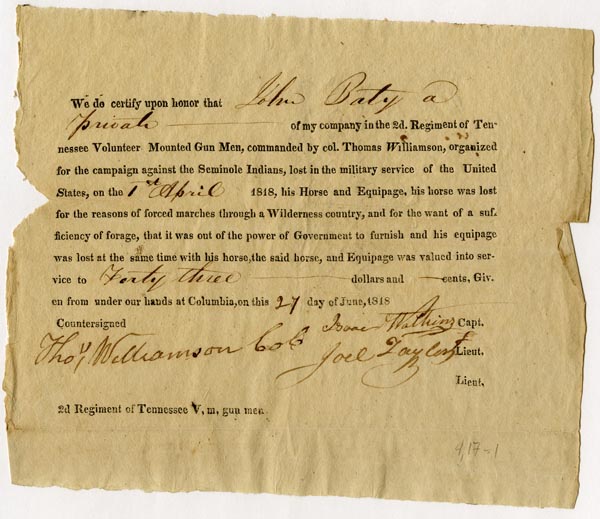 We do certify upon honor that John Baty a
private of my company in the 2d. Regiment of Ten-
nessee Volunteer Mounted Gun Men, commanded by col. Thomas Williamson, organized
for the campaign against the Seminole Indians, lost in the military service of the United
States, on the 1st April 1818, his Horse and Equipage, his horse was lost
for the reasons of forced marches through a Wilderness country, and for the want of a suf-
ficiency of forage, that it was out of the power of Government to furnish and his equipage
was lost at the same time with his horse, the said horse, and Equipage was valued into ser-
vice to Forty three dollars and cents, Giv-
en from under our hands at Columbia, on this 27 day of June, 1818
Countersigned Isaac Watkins Capt.
Thos. Williamson Col Joel Taylor Lieut.
Lieut.
2d Regiment of Tennessee V, m, gun men
4,17-1